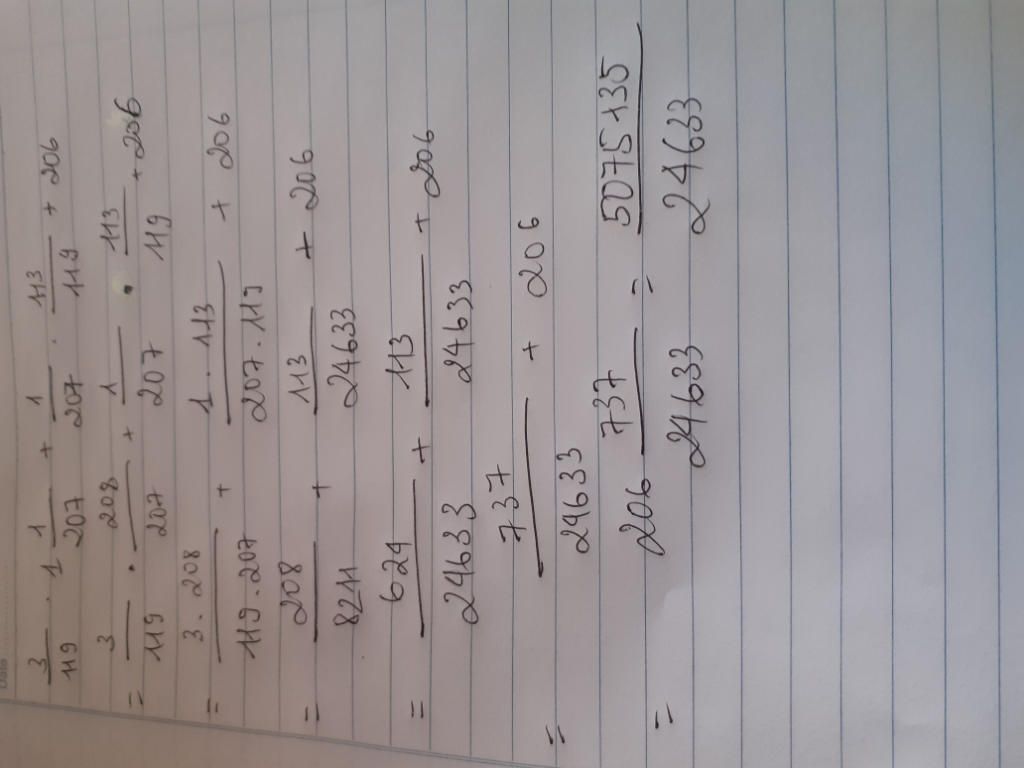 3/119 . 1 1/207 + 1/207 . 113/119 + 206
= 3/119 . 208/207 + 1/207 . 113/119 + 206
= 3 . 208/119 . 207 + 1 . 113/207 . 119 + 206
= 208/8211 + 113/24633 + 206
= 624/24633 + 113/24633 + 206
= 737/24633 + 206
= 206 737/24633 = 5075135/24633